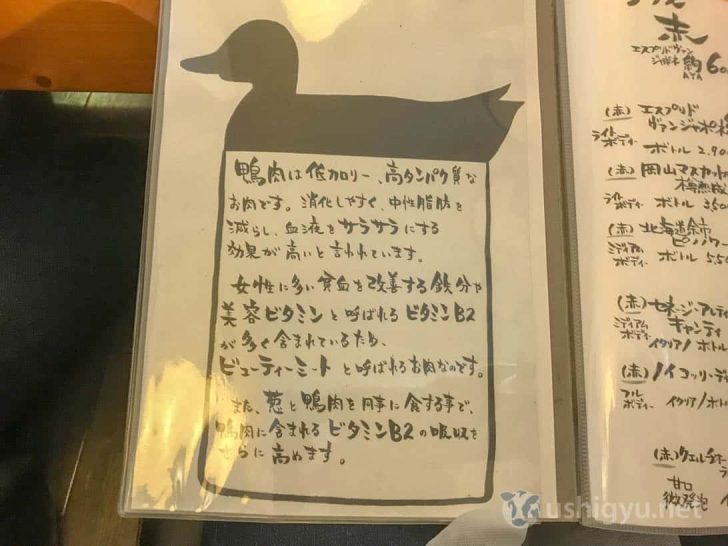 鴨肉は低カロリー、高タンパク質な
お肉です。消化しやすく、中性脂肪を
減らし、血液をサラサラにする
効果が高いと言われています。
女性に多い貧血を改善する鉄分や
美容ビタミンと呼ばれるビタミンB2
が多く含まれているため、
ビューティーミートと呼ばれるお肉なのです。
また、葱と鴨肉を同時に食する事で、
鴨肉に含まれるビタミンB2の吸収を
さらに高めます。
赤
(赤) エスプリド
ヴァンジャポネ
ボトル 2,90
(赤) 岡山マスカット
ボトル 350
(赤) 北海道余市
ミディアム ピノノワ
ボディー ボトル 550
(赤) セネージ・アルティ
ミディアム キャンティ
ボディー イタリア/ボトル
(赤) ノイコッリ・ディ
フル
ボディー イタリア/ボト
甘口
微発泡
ushigyu.net